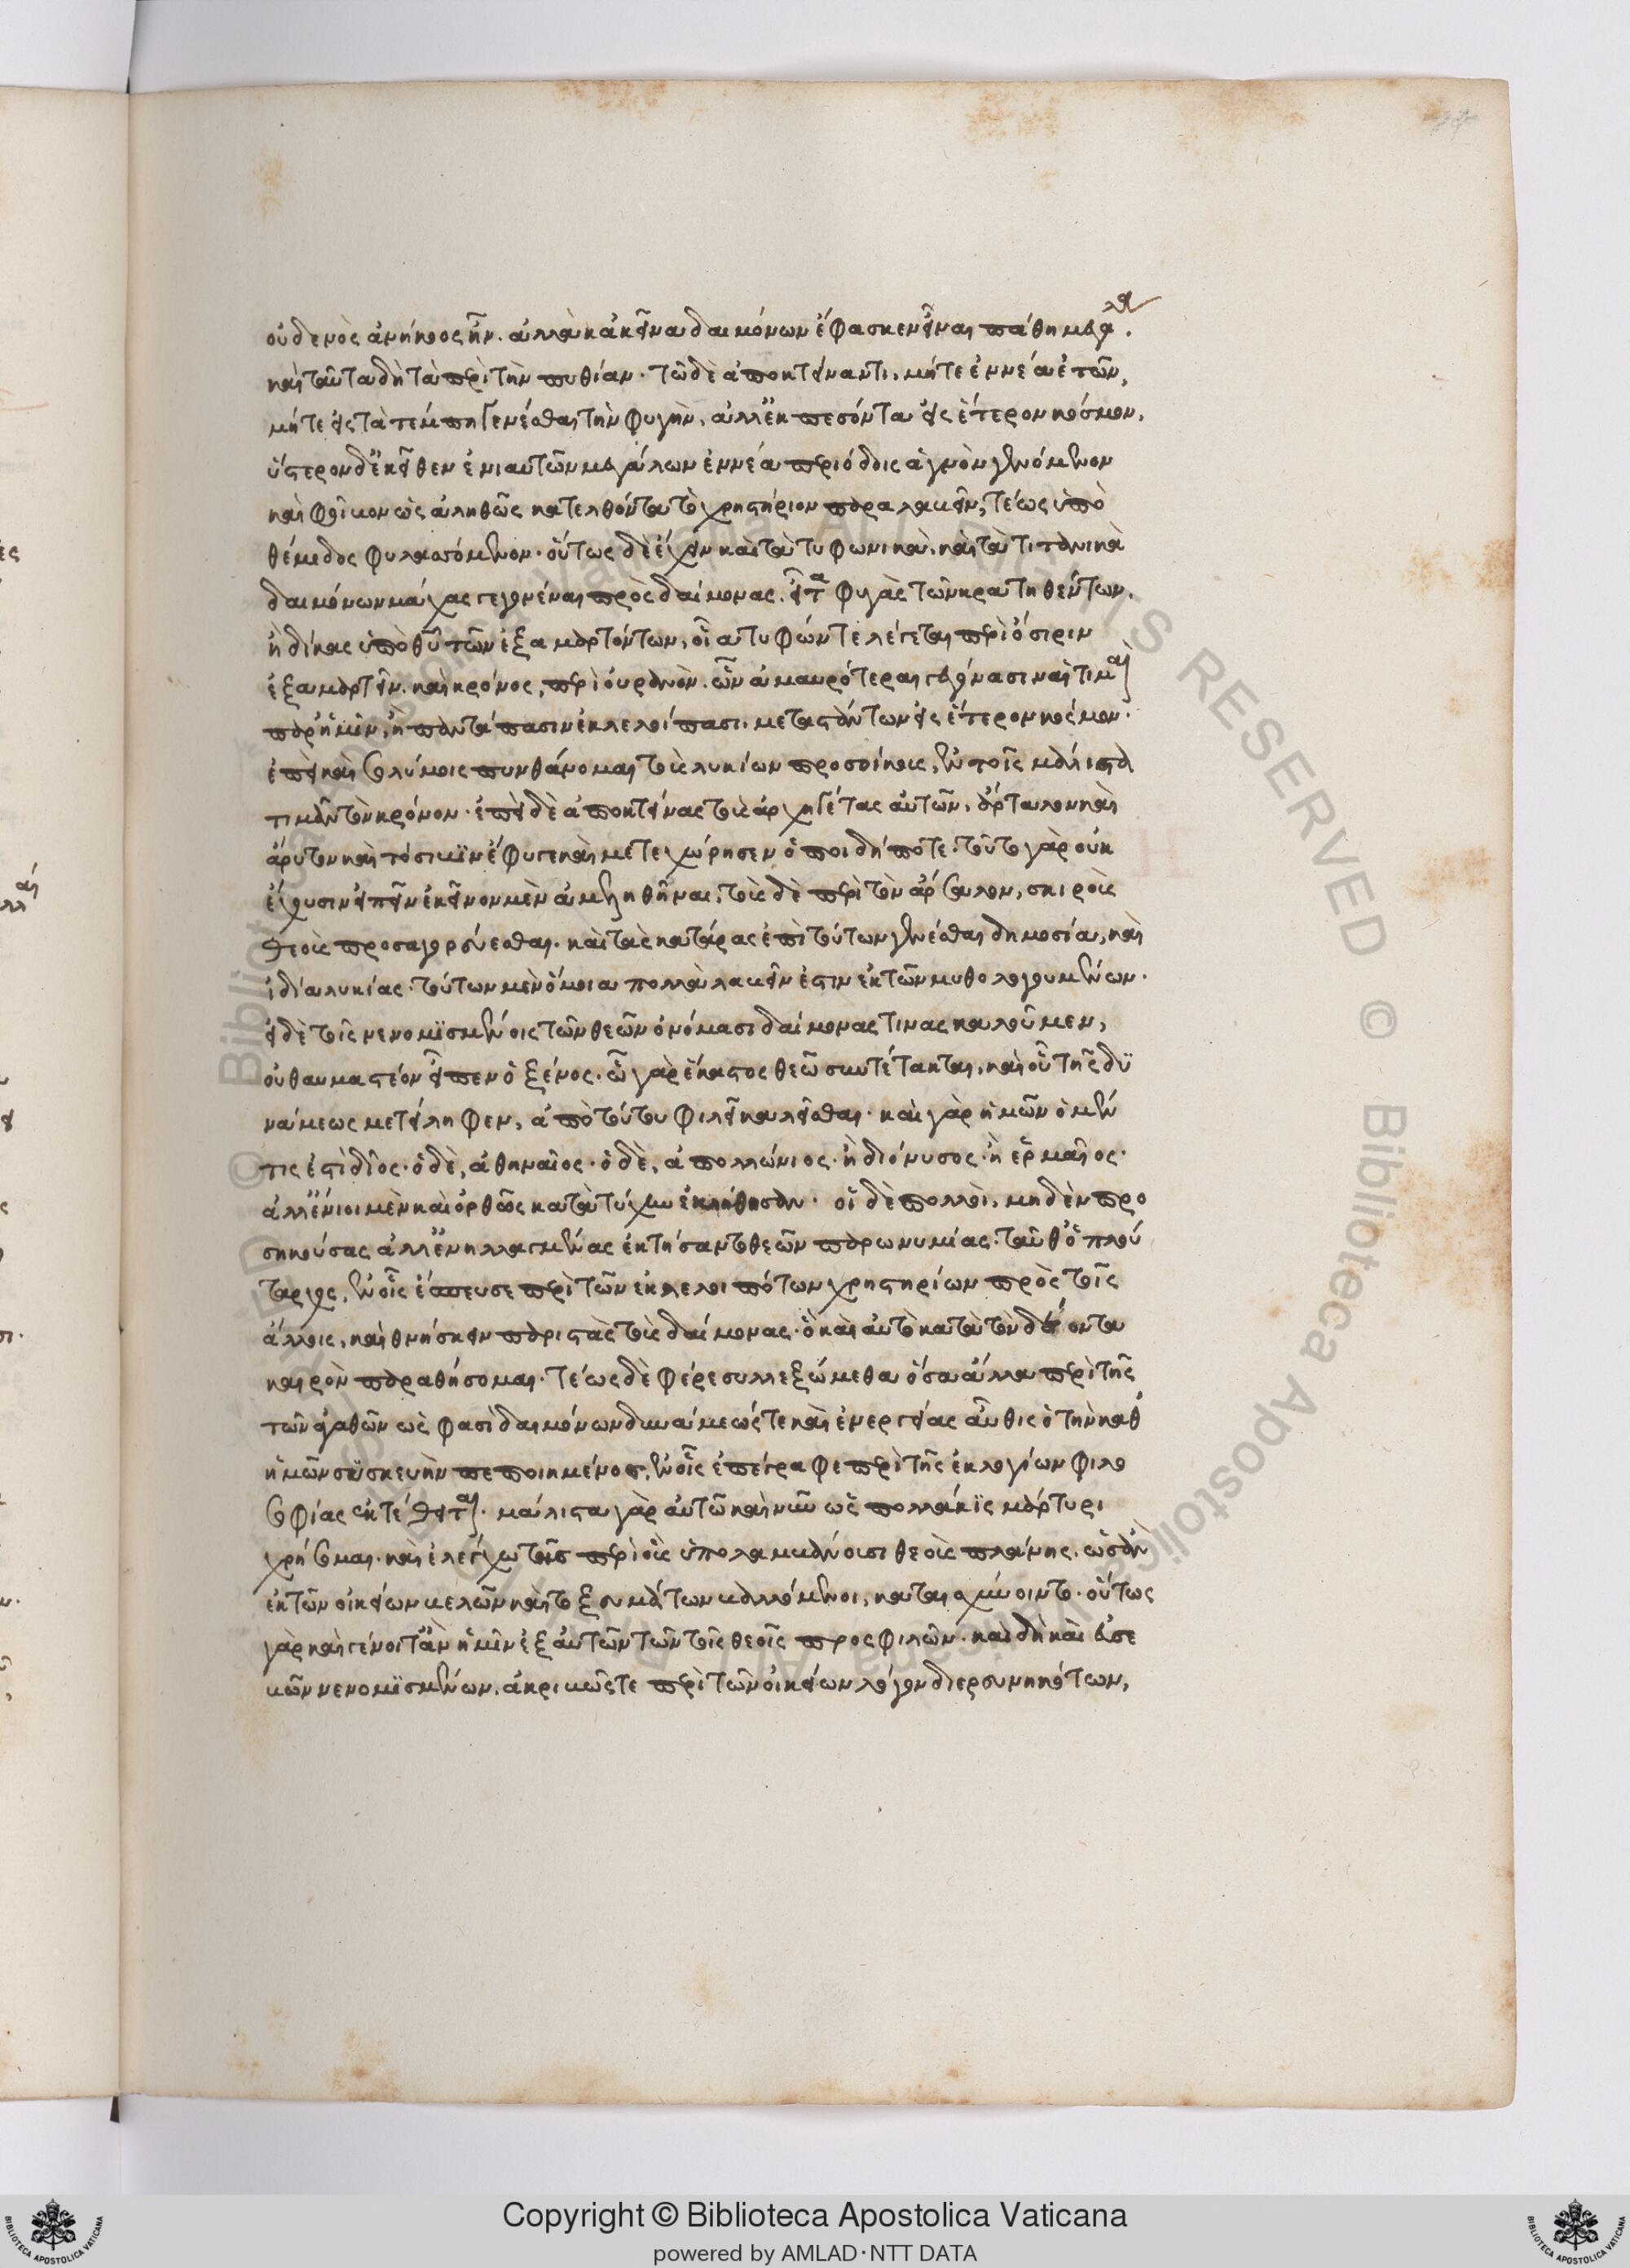 οὐδενὸς ἀνήκοος ἦν. ἀλλὰ κἀκεῖνα δαιμόνων ἔφασκεν εἶναι πάθη μεγάλα.
καὶ ταῦτα δὴ τὰ περὶ τὴν πυθίαν. τῶ δὲ ἀποκτείναντι, μήτε ἐννέα ἐτῶν,
μήτε εἰς τὰ τέμπη γενέσθαι τὴν φυγὴν, ἀλλ' ἐκπεσόντα εἰς ἕτερον κόσμον,
ὕστερον δ' ἐκεῖθεν ἐνιαυτῶν μεγάλων ἐννέα περιόδοις ἁγνὸν γενόμενον
καὶ φοῖβον ὡς ἀληθῶς κατελθόντα τὸ χρηστήριον παραλαβεῖν, τέως ὑπὸ
θέμιδος φυλαττόμενον. οὕτως δὲ ἔχειν καὶ τὰ τυφωνικὰ, καὶ τὰ τιτανικὰ
δαιμόνων μάχας γεγονέναι πρὸς δαίμονας. εἶτα φυγὰς τῶν κρατηθέντων,
ἢ δίκας ὑπὸ θεοῦ τῶν ἐξαμαρτόντων, οἷα τυφών τε λέγεται περὶ ὄσιριν
ἐξαμαρτεῖν. καὶ κρόνος, περὶ οὐρανὸν. ὧν ἀμαυρότεραι γεγόνασιν αἱ τιμαὶ
παρ' ἡμῖν, ἢ παντάπασιν ἐκλελοίπασι. μεταστάντων εἰς ἕτερον κόσμον.
ἐπεὶ καὶ σολύμοις πυνθάνομαι τοὺς λυκίων προσοίκους, ἐν τοῖς μάλιστα
τιμᾶν τὸν κρόνον. ἐπεὶ δὲ ἀποκτείνας τοὺς ἀρχηγέτας αὐτῶν, ἄρταλον καὶ
ἄρυτον καὶ τόσιβϊν ἔφυγε καὶ μετεχώρησεν ὅποι δήποτε. τοῦτο γὰρ οὐκ
ἔχουσιν εἰπεῖν ἐκεῖνον μὲν ἀμεληθῆναι, τοὺς δὲ περὶ τὸν ἄρσαλον, σκιροὺς
θεοὺς προσαγορεύεσθαι. καὶ τὰς κατάρας ἐπὶ τούτων γενέσθαι δημοσία, καὶ
ἰδία λυκίας. τούτων μὲν ὅμοια πολλὰ λαβεῖν ἐστιν ἐκ τῶν μυθολογουμένων.
εἰ δὲ τοῖς νενομϊσμένοις τῶν θεῶν ὀνόμασι δαίμονας τινας καλοῦμεν,
οὐ θαυμαστέον εἶπεν ὁ ξένος. ὧ γὰρ ἕκαστος θεῶ συντέτακται, καὶ οὗ τῆς δϋ
νάμεως μετείληφεν, ἀπὸ τούτου φιλεῖ καλεῖσθαι. καὶ γὰρ ἡμῶν ὁ μέν
τις ἐστὶ δῖος. ὁ δὲ, ἀθηναῖος. ὁ δὲ, ἀπολλώνιος. ἢ διόνυσος. ἢ ἑρμαῖος.
ἀλλ' ἔνιοι μὲν καὶ ὀρθῶς κατὰ τύχην ἐκλήθησαν. οἱ δὲ πολλοὶ, μηδὲν προ
σηκούσας ἀλλ' ἐνηλλαγμένας ἐκτήσαντο θεῶν παρωνυμίας. ταῦθ' ὁ πλού
ταρχος, ἐν οἷς ἔσπευσε περὶ τῶν ἐκλελοιπότων χρηστηρίων πρὸς τοῖς
ἄλλοις, καὶ θνήσκειν παριστὰς τοὺς δαίμονας. ὃ καὶ αὐτὸ κατὰ τὸν δέοντα
καιρὸν παραθήσομαι. τέως δὲ φέρε συλλεξώμεθα ὅσα ἄλλα περὶ τῆς
τῶν ἀγαθῶν ὡς φασὶ δαιμόνων δυνάμεώς τε καὶ ἐνεργείας αὖθις ὁ τὴν καθ'
ἡμῶν σϋσκευὴν πεποιημένος, ἐν οἷς ἐπέγραφε περὶ τῆς ἐκ λογίων φιλο
σοφίας ἐκτέθειται. μάλιστα γὰρ αὐτῶ καὶ νῦν ὡς πολλάκϊς μάρτυρι
χρήσομαι. καὶ ἐλέγχω τῆς περὶ οὓς ὑπολαμβάνουσι θεοὺς πλάνης, ὡς ἂν
ἐκ τῶν οἰκείων βελῶν καὶ τοξευμάτων βαλλόμενοι, καταισχύνοιντο. οὕτως
γὰρ καὶ γένοιτ' ἂν ἡμῖν ἐξ αὐτῶν τῶν τοῖς θεοῖς προσφιλῶν. καὶ δὴ καὶ εὐσε
βῶν νενομϊσμένων. ἀκριβῶς τε περὶ τῶν οἰκείων λόγον διερευνηκότων,